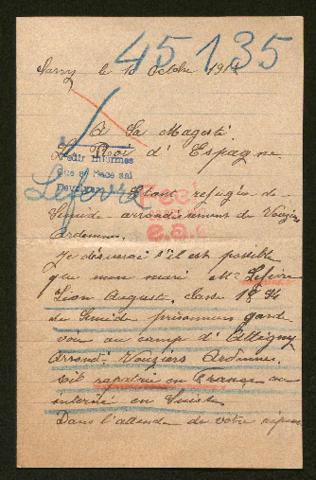 45135
le 10 Octobre 191
À Sa Magesté
Le Roi d'Espagne
Pedir informes
Que se hace sai
Lefevre
Etant refugée de
Semide arrondissement de Vouziers
Ardennes.
Je désirerai s'il est possible
que mon mari Mr Lefevre
Léon Auguste, classe 1894
de Semide prisonnier gard
voie au camp d'Attigny
arrond. Vouziers Ardennes.
soit rapatrié en France ou
interné en Suisse
Dans l'attende de votre répon